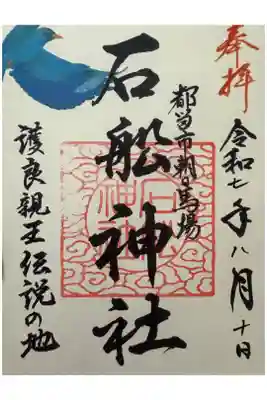 奉拝
令和七年八月十日
都留市朝日馬場
石船神社
護良親王伝説の地